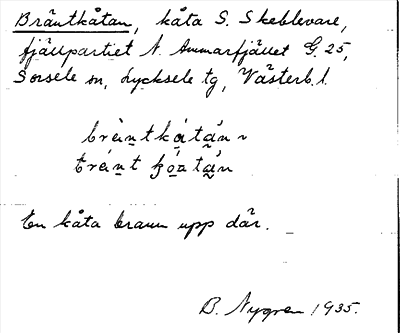 Bräntkåtan, kåta S. Skeblevare,
fjällpartiet N. Ammarfjället G. 25,
Sorsele sn, Lycksele tg, Västerb. l.
En kåta brann upp där.
B. Nygren 1935.